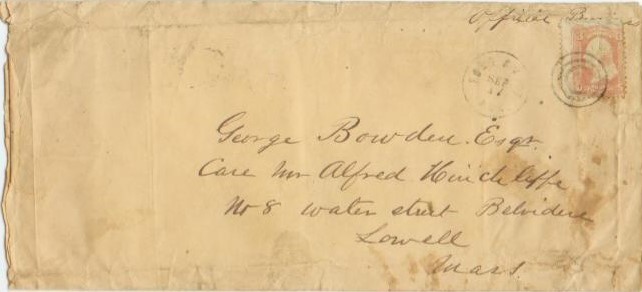 Official Business
SEP
17
George Bowden. Esqr.
Care Mr Alfred Hinchcliffe
No 8 water street Belvidere
Lowell
Mass.